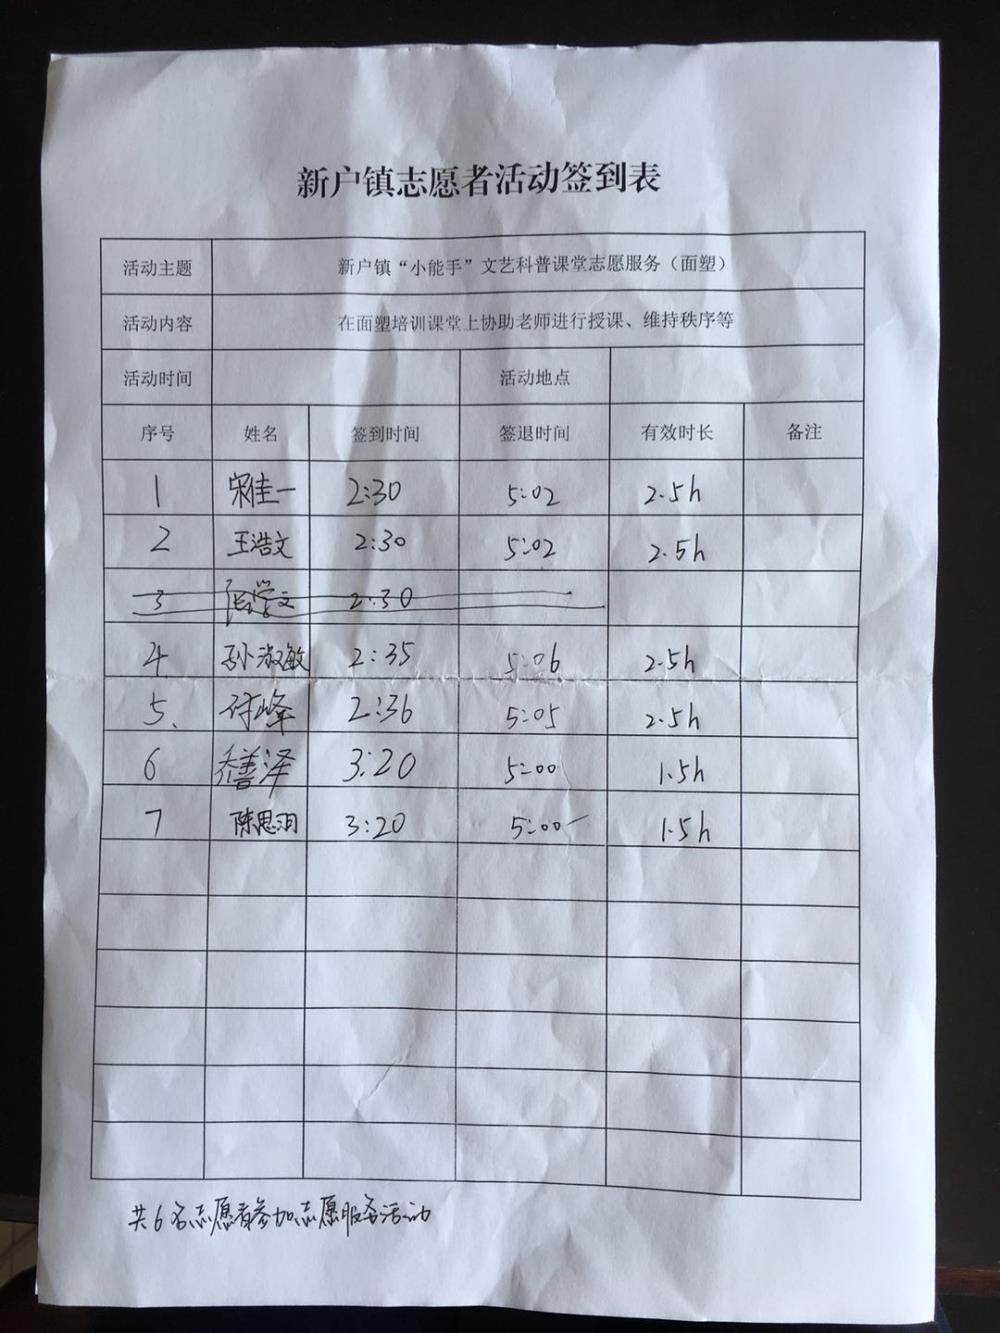 新户镇志愿者活动签到表
活动主题 新户镇“小能手”文艺科普课堂志愿服务（面塑）
活动内容 在面塑培训课堂上协助老师进行授课、维持秩序等
活动时间 活动地点
序号 姓名 签到时间 签退时间 有效时长 备注
1 宋佳一 2:30 5:02 2.5h
2 王浩文 2:30 5:02 2.5h
3 2:30
4. 孙淑敏 2:35 5:06 2.5h
5、 峰 2:36 5:05 2.5h
6 善泽 3:20 5:00 1.5h
7 陈思羽 3:20 5:00 1.5h
共6名志愿者参加志愿服务活动